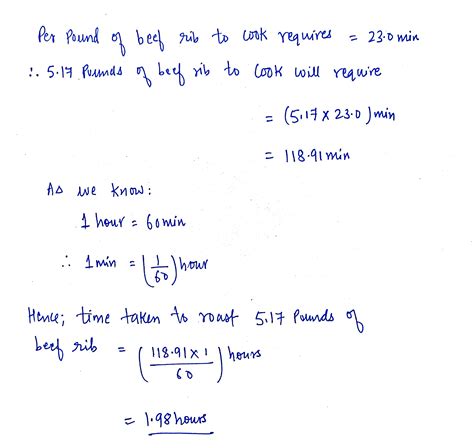 Per Pound of beef rib to cook requires = 23.0 min
∴ 5.17 Pounds of beef rib to cook will require
= (5.17 x 23.0) min
= 118.91 min
As we know:
1 hour = 60 min
∴ 1 min = (1/60) hour
Hence; time taken to roast 5.17 Pounds of
beef rib = (118.91 x 1 / 60) hours
= 1.98 hours